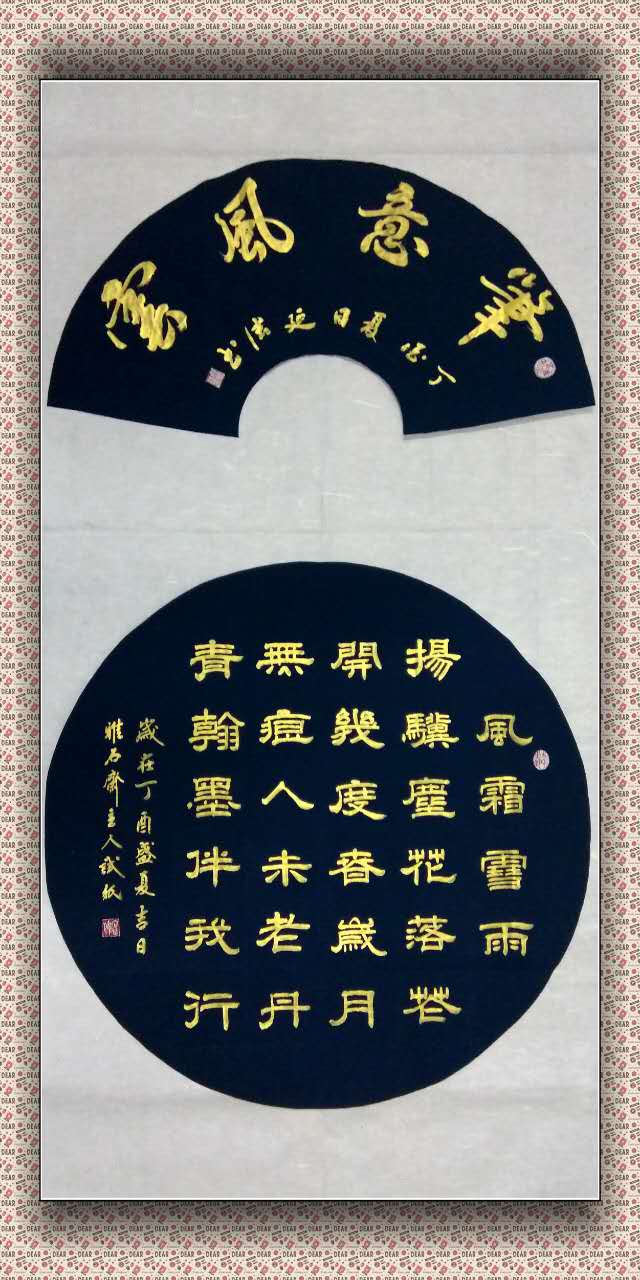 筆意風雲
丁酉夏日延书
風霜雪雨
揚驥塵花落花
開幾度春歲月
無痕人未老丹
青翰墨伴我行
歲在丁酉盛夏吉日
雅石齋主人試紙